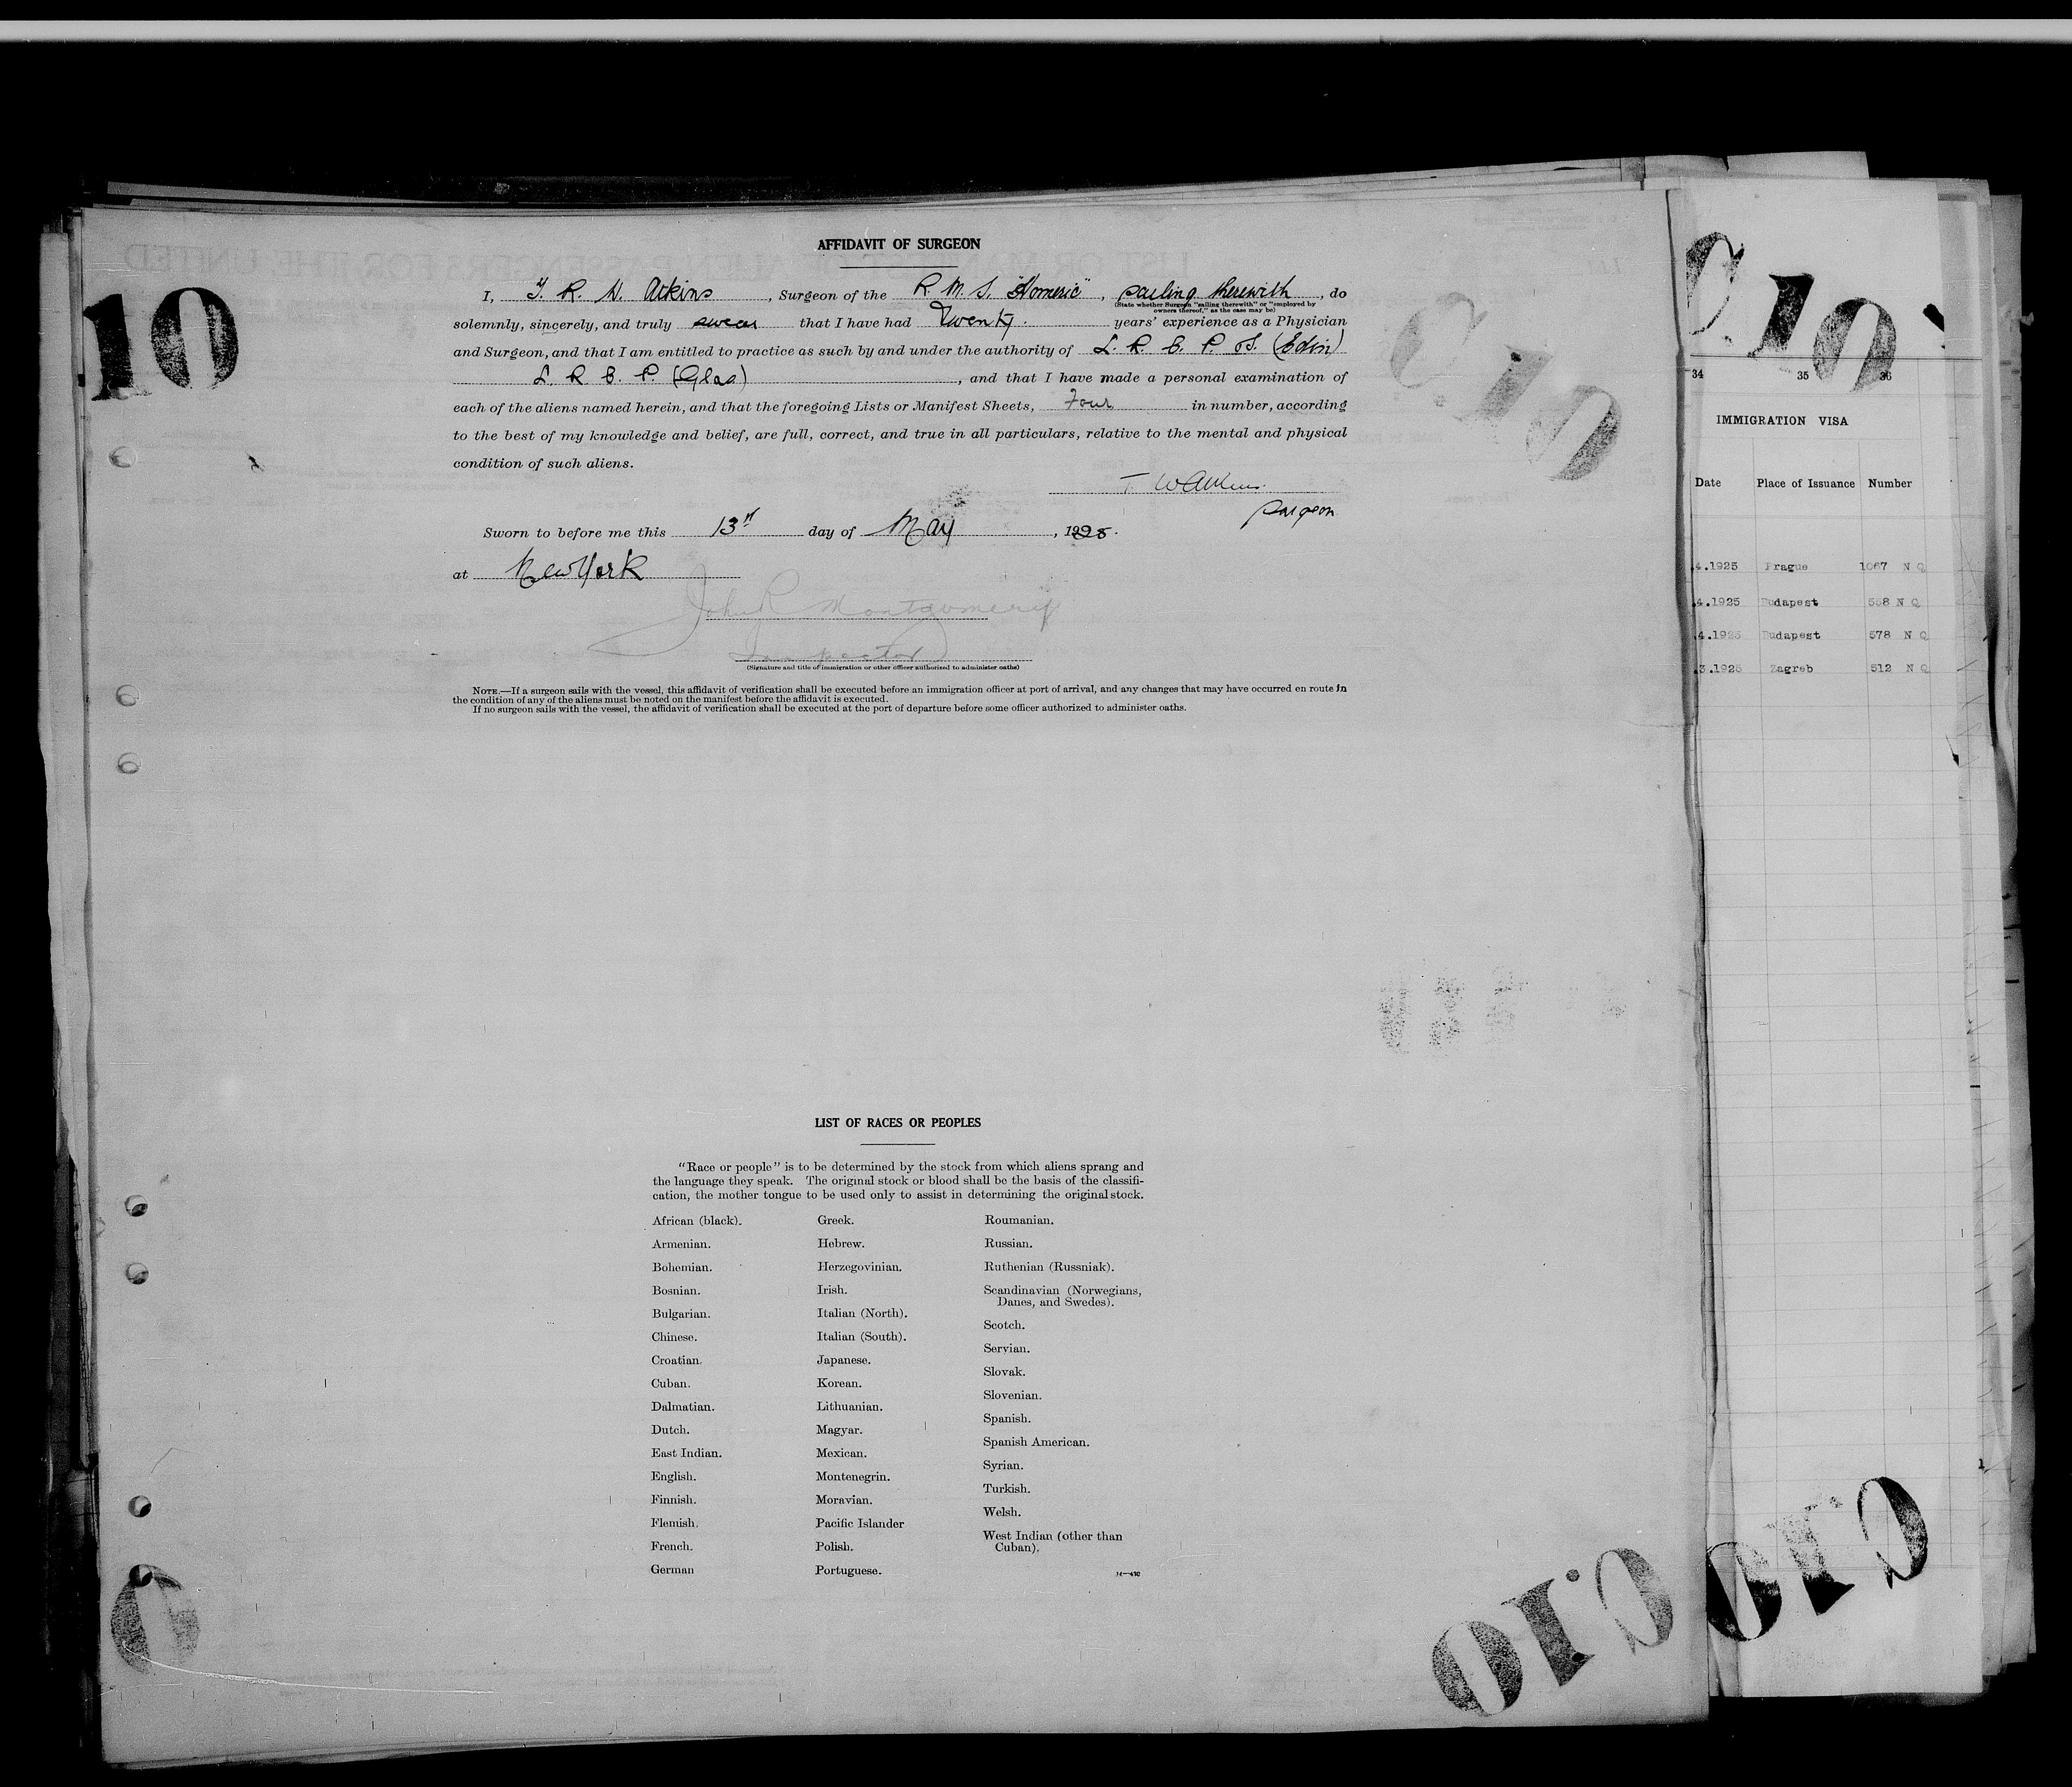 AFFIDAVIT OF SURGEON
10
I, T. R. W. Atkins, Surgeon of the R.M.S. "Homeric", sailing therewith, do
(State whether Surgeon "sailing therewith" or "employed by
owners thereof," as the case may be)
solemnly, sincerely, and truly swear that I have had Twenty. years' experience as a Physician
and Surgeon, and that I am entitled to practice as such by and under the authority of L. R. C. P. & S. (Edin)
L. R. C. P. (Glas), and that I have made a personal examination of
each of the aliens named herein, and that the foregoing Lists or Manifest Sheets, Four in number, according
to the best of my knowledge and belief, are full, correct, and true in all particulars, relative to the mental and physical
condition of such aliens.
T W Atkins.
Surgeon
Sworn to before me this 13th day of May, 1925.
at New York
John R Montgomery
Inspector
(Signature and title of immigration or other officer authorized to administer oaths)
NOTE.—If a surgeon sails with the vessel, this affidavit of verification shall be executed before an immigration officer at port of arrival, and any changes that may have occurred en route in
the condition of any of the aliens must be noted on the manifest before the affidavit is executed.
If no surgeon sails with the vessel, the affidavit of verification shall be executed at the port of departure before some officer authorized to administer oaths.
LIST OF RACES OR PEOPLES
"Race or people" is to be determined by the stock from which aliens sprang and
the language they speak. The original stock or blood shall be the basis of the classifi-
cation, the mother tongue to be used only to assist in determining the original stock.
African (black).
Armenian.
Bohemian.
Bosnian.
Bulgarian.
Chinese.
Croatian.
Cuban.
Dalmatian.
Dutch.
East Indian.
English.
Finnish.
Flemish.
French.
German
Greek.
Hebrew.
Herzegovinian.
Irish.
Italian (North).
Italian (South).
Japanese.
Korean.
Lithuanian.
Magyar.
Mexican.
Montenegrin.
Moravian.
Pacific Islander
Polish.
Portuguese.
Roumanian.
Russian.
Ruthenian (Russniak).
Scandinavian (Norwegians,
Danes, and Swedes).
Scotch.
Servian.
Slovak.
Slovenian.
Spanish.
Spanish American.
Syrian.
Turkish.
Welsh.
West Indian (other than
Cuban).
C.10
C.10
34 35 36
IMMIGRATION VISA
Date Place of Issuance Number
4.1925 Prague 1067 N Q
4.1925 Budapest 558 N Q
4.1925 Budapest 578 N Q
3.1925 Zagreb 512 N Q
C.10
C.10